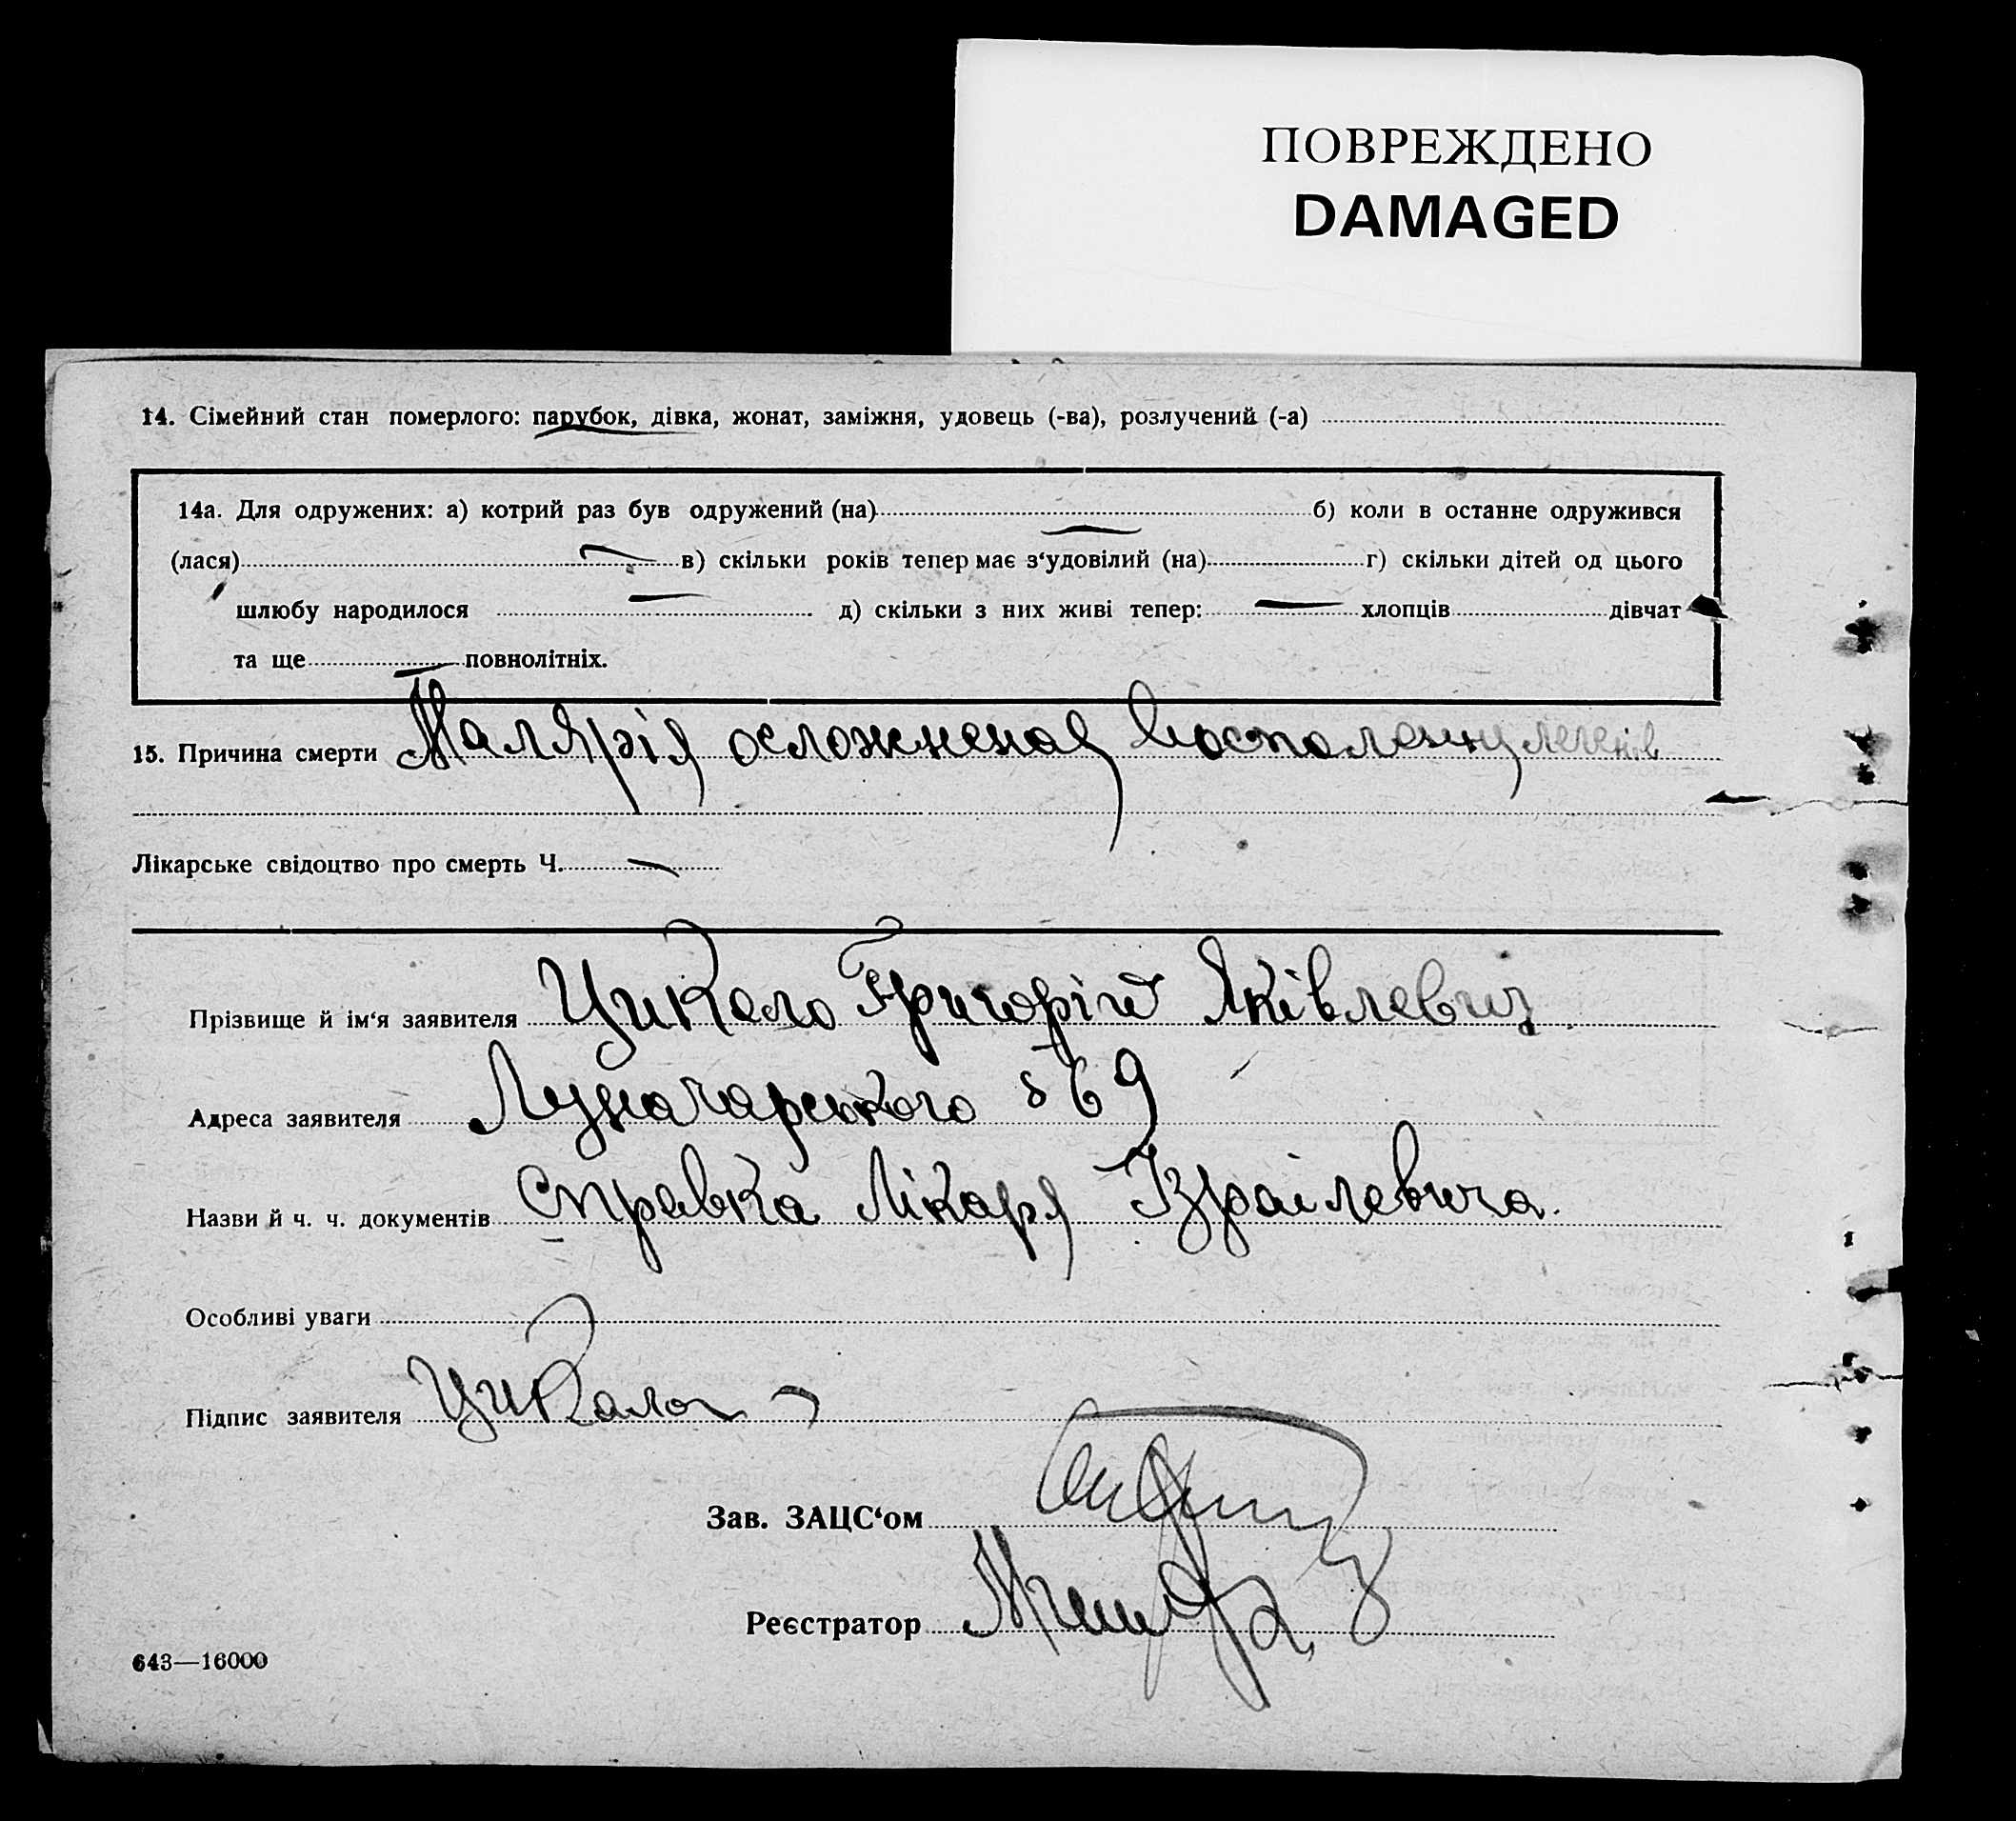 ПОВРЕЖДЕНО
DAMAGED
14. Сімейний стан померлого: парубок, дівка, жонат, заміжня, удовець (-ва), розлучений (-а)
14а. Для одружених: а) котрий раз був одружений (на) б) коли в останне одружився
(лася) в) скільки років тепер має з‘удовілий (на) г) скільки дітей од цього
шлюбу народилося д) скільки з них живі тепер: — хлопців дівчат
та ще повнолітніх.
15. Причина смерти Малярія осложненая легенів
Лікарське свідоцтво про смерть Ч. —
Прізвище й ім‘я заявителя Цикало Григорій Яківлевич
Адреса заявителя Луначарського 69
Назви й ч. ч. документів Справка Лікаря Ізраілевича.
Особливі уваги
Підпис заявителя Цикало
Зав. ЗАЦС‘ом
Реєстратор
643—16000